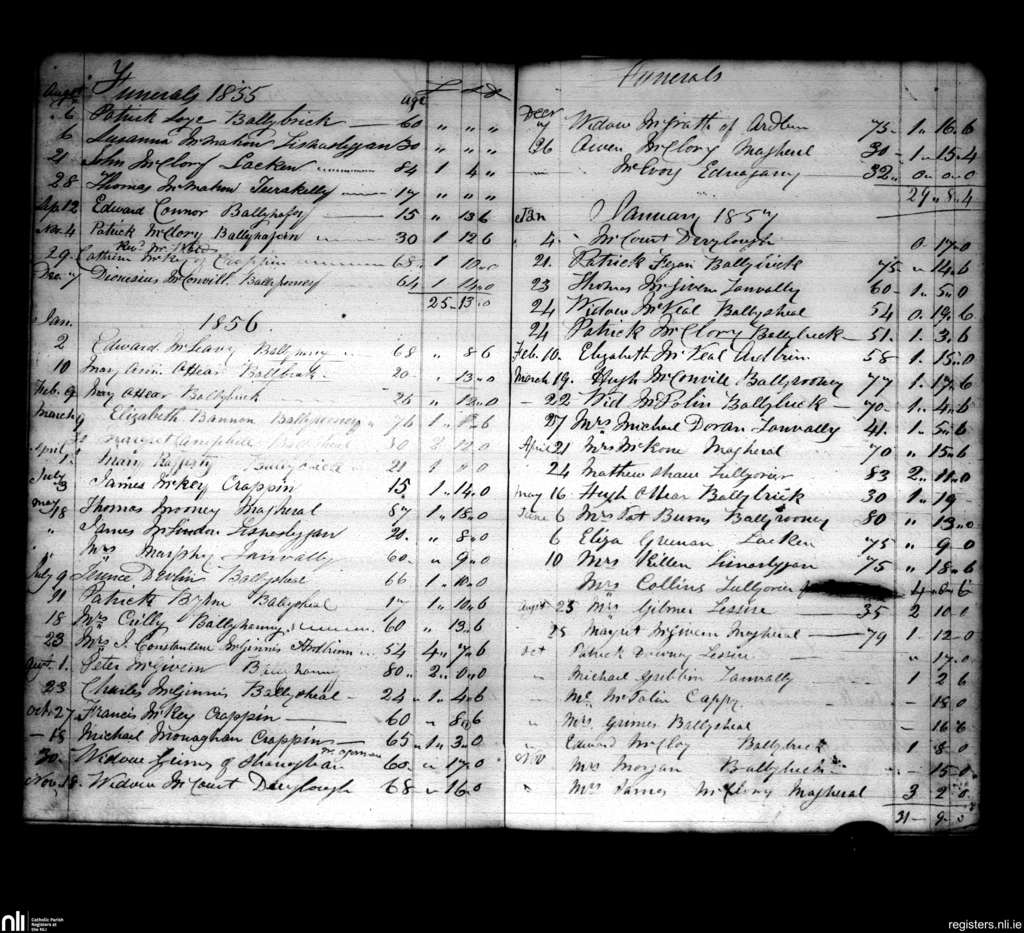 Funerals 1855 age £ s d
Augt 6 Patrick Loye Ballybrick 60 " " "
6 Susanna McMahon Lisnaslyggan 30 " " "
21 John McClory Lacken 84 1 4 "
28 Thomas McMahon Turakelly 17 " " "
Sep. 12 Edward Connor Ballyhafry 15 " 13 6
Nov. 4 Patrick McClory Ballyhafern 30 1 12 6
Revd
29 McKey of Crappin 68 1 10
Dec. 7 Dionisius McConvill Ballyrooney 64 1
25 - 13 - 0
1856
Jan.
2 Edward McLeavy 68 " 8 6
10 Mary Ann OHear Ballbrick 20 " 13 " 0
Feb. 9 Mary OHear Ballybrick 26 " 12 " 0
March 9 Elizabeth Bannon Ballyrooney 76 1 6
Campbell Ballysheal 12 0
April 1 Mary Rafferty 21 0
July 3 James McKey Crappin 15 1 " 14 " 0
May 18 Thomas Mooney Magheral 87 1 " 18 " 0
" James Lisnaslyggan 20 " 8 " 0
" Mrs Murphy Lanvally 60 " 9 " 0
July 9 Terence Devlin Ballysheal 66 1 " " 0
21 Patrick Byrne Ballysheal 17 1 " 10 " 6
18 Mrs Crilly 60 " 13 " 6
23 Mrs J. Constantine McGinnis Ardbrinn 54 4 " 7 " 6
Augt. 1 Peter McGivern 80 2 " 0 " 0
23 Charles McGinnis Ballysheal 24 1 " 4 " 6
Oct. 27 Francis McKey Crappin 60 " 8 " 6
18 Michael Monaghan Crappin 65 " 1 " 3 " 0
30 Widow of Shanaghan 60 " 17 " 0
Nov. 18 Widow McCourt Derylough 68 " 16 " 0
Funerals
Decr
Widow McGrath of Ardbrin 75 1 " 16 " 6
26 Owen McClory Magheral 30 1 " 15 " 4
McEvoy Ednagany 32 " 0 " 0 " 0
29 " 8 " 4
Jan January 1857
4 McCourt Derylough 0 " 17 " 0
21 Patrick Fegan Ballybrick 75 " 14 " 6
23 Thomas McGivern Lanvally 60 1 " 5 " 0
24 Widow McVeal Ballysheal 54 0 " 19 " 6
24 Patrick McClory Ballybrick 51 1 " 3 " 6
Feb. 10 Elizabeth McVeal Ardbrin 58 1 " 15 " 0
March 19 Hugh McConvill Ballyrooney 77 1 " 17 " 6
22 Wid McPolin Ballybrick 70 1 " 4 " 6
27 Mrs Michael Doran Lanvally 41 1 " 5 " 6
April 21 Mrs McKone Magheral 70 " 15 " 6
24 Mathew Shaw Tullyorier 83 2 " 11 " 0
May 16 Hugh OHear Ballybrick 30 1 " 19
June 6 Mrs Pat Burns Ballyrooney 80 " 13 " 0
6 Eliza Greenan Lacken 75 " 9 0
10 Mrs Killen 75 " 18 " 6
Mrs Collins Tullyorier 4 " 6 " 6
Augst 25 Mrs Gilmer Lessize 35 2 10 0
25 Magret McGivern Magheral 79 1 12 0
Oct Patrick Downey Lessize " 17 0
" Michael Gribbin Lanvally 1 2 6
" McPolin Cappy 18 0
" Mrs. Grimes Ballysheal 16 6
" Edward McCloy Ballybrick 1 8 0
Nov Mrs Morgan Ballybrick 15
" Mrs James McClory Magheral 3 2 0
31 9 0
nli
Catholic Parish
Registers at
the NLI
registers.nli.ie